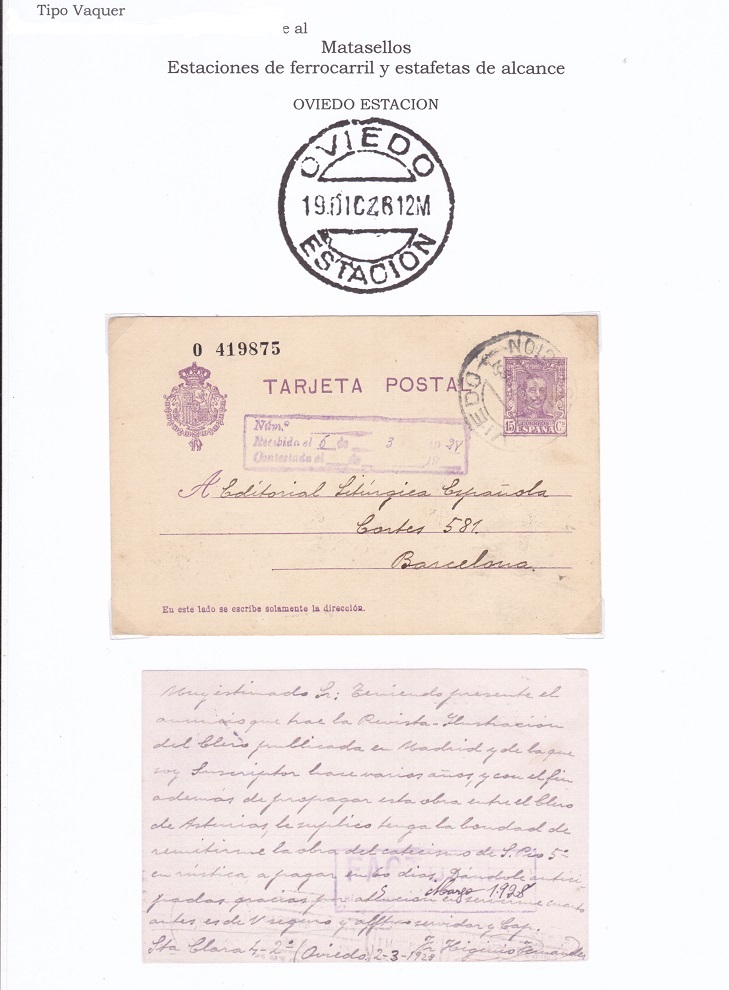 Tipo Vaquer
e al
Matasellos
Estaciones de ferrocarril y estafetas de alcance
OVIEDO ESTACION
OVIEDO
19.DIC26 12M
ESTACION
0 419875
TARJETA POSTAL
OVIEDO ESTACION
15 ESPAÑA Cs
Núm.º
Recibida el 6 de 3 19 28
Contestada el de 19
A Editorial Litúrgica Española
Cortes 581.
Barcelona.
En este lado se escribe solamente la dirección.
Muy estimado Sr: Teniendo presente el
anuncio que trae la Revista-Ilustración
del Clero publicada en Madrid y de la que
soy Suscriptor hace varios años, y con el fin
además de propagar esta obra entre el Clero
de Asturias, le suplico tenga la bondad de
remitirme la obra del catecismo de S. Pio 5º
en rústica a pagar en 60 dias. Dándole antici
FACT
5 Marzo 1928
padas gracias por atención en servirme cuanto
antes es de V seguro y affmo servidor y Cap.
Sta Clara 4-2º (Oviedo 2-3-1928 Higinio Fernández